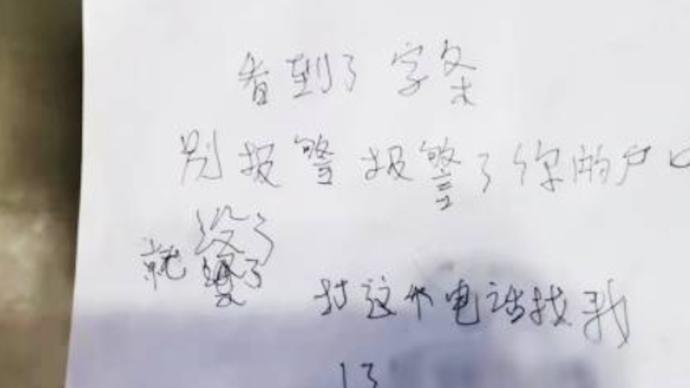 看到了字条
别报警报警了你的户口
就没了
打这个电话找我
13